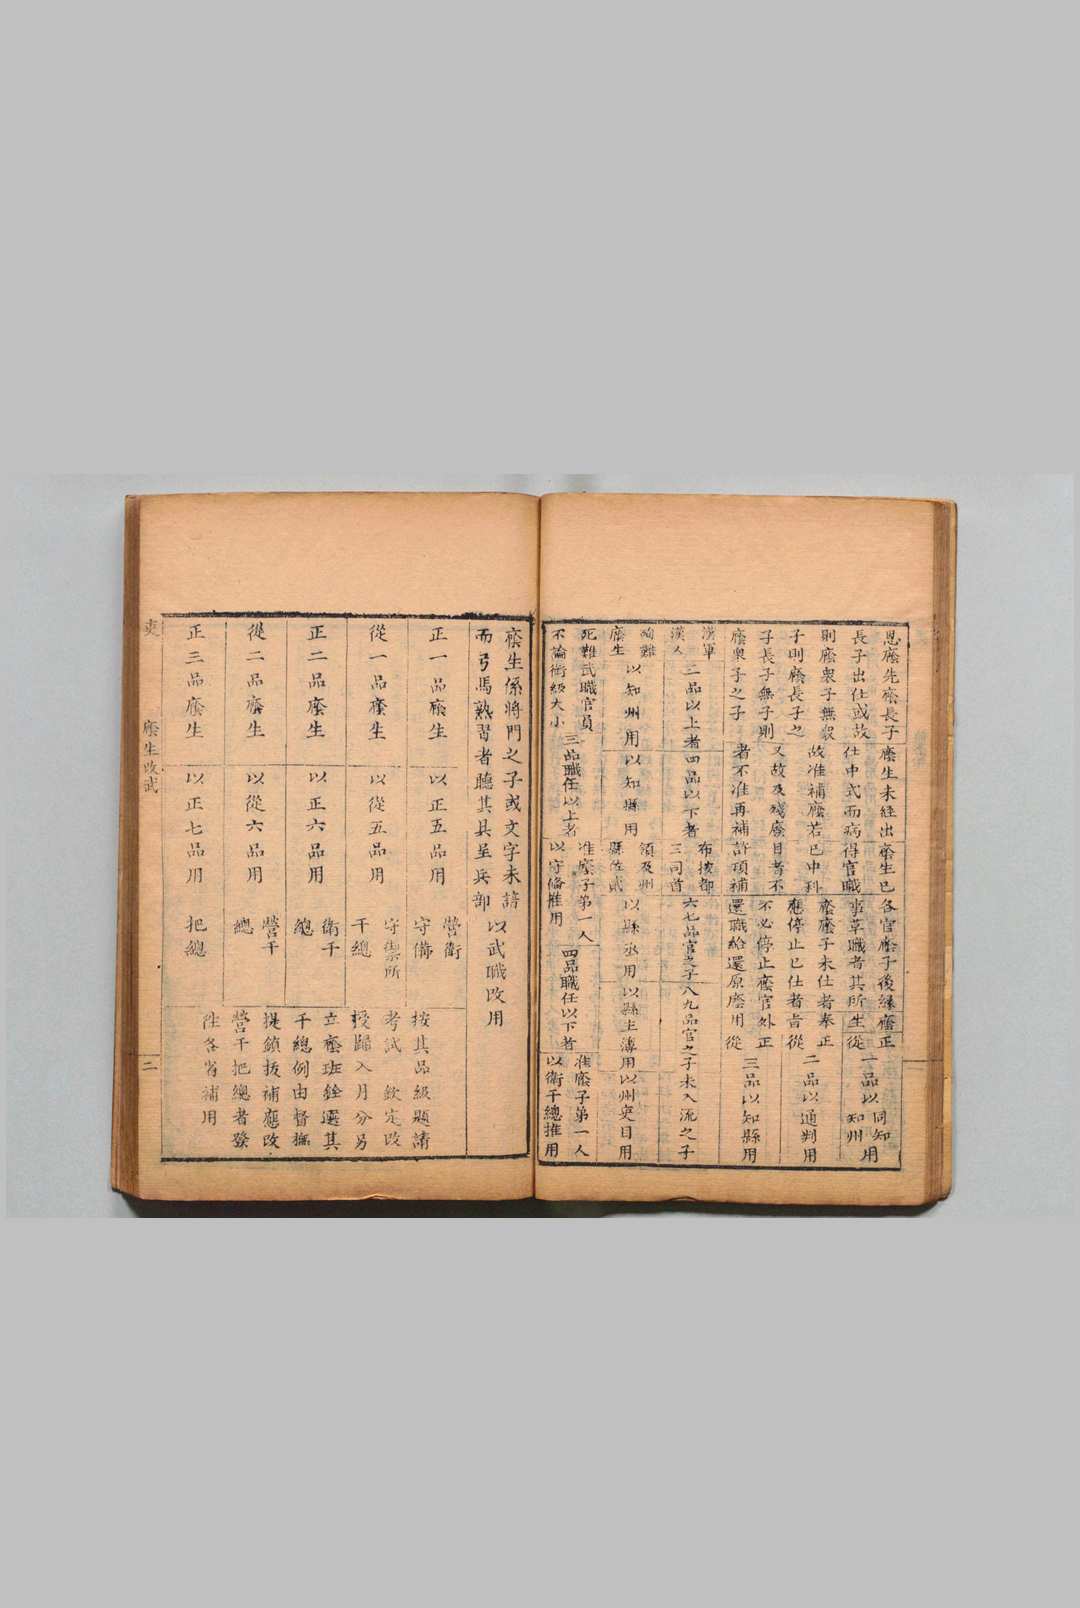 恩廕先廕長子
長子出仕或故
則廕衆子無衆
子則廕長子之
子長子無子則
廕衆子之子
廕生未經出
仕中式而病
故准補廕若已中科
又故及殘廢目者不
者不准再補
廕生已
得官職
許頂補
各官廕子後緣
事革職者其所
廕廕子未仕者奉
應停止已仕者
不必停止廕官外
還職給還原廕用
廕正
生從
一品以同知
知州用
正
從
二品以通判用
正
從
三品以知縣用
漢軍
漢人
三品以上者
四品以下者
布按都
三司首
領及州
縣佐貳
六七品官之子
八九品官之子
未入流之子
殉難
廕生
以知州用
以知縣用
以縣丞用
以縣主簿用
以州吏目用
死難武職官員
不論銜級大小
三品職任以上者
准廕子第一人
以守備推用
四品職任以下者
准廕子第一人
以衛千總推用
廕生係將門之子或文字未諳
而弓馬熟習者聽其具呈兵部
以武職改用
正一品廕生
以正五品用
營衛
守備
從一品廕生
以從五品用
守禦所
千總
正二品廕生
以正六品用
衛千
總
從二品廕生
以從六品用
營千
總
正三品廕生
以正七品用
把總
按其品級題請
考試 欽定改
授歸入月分另
立廕班銓選其
千總例由督撫
提鎮拔補應改
營千把總者發
往各省補用
吏
廕生改武
二